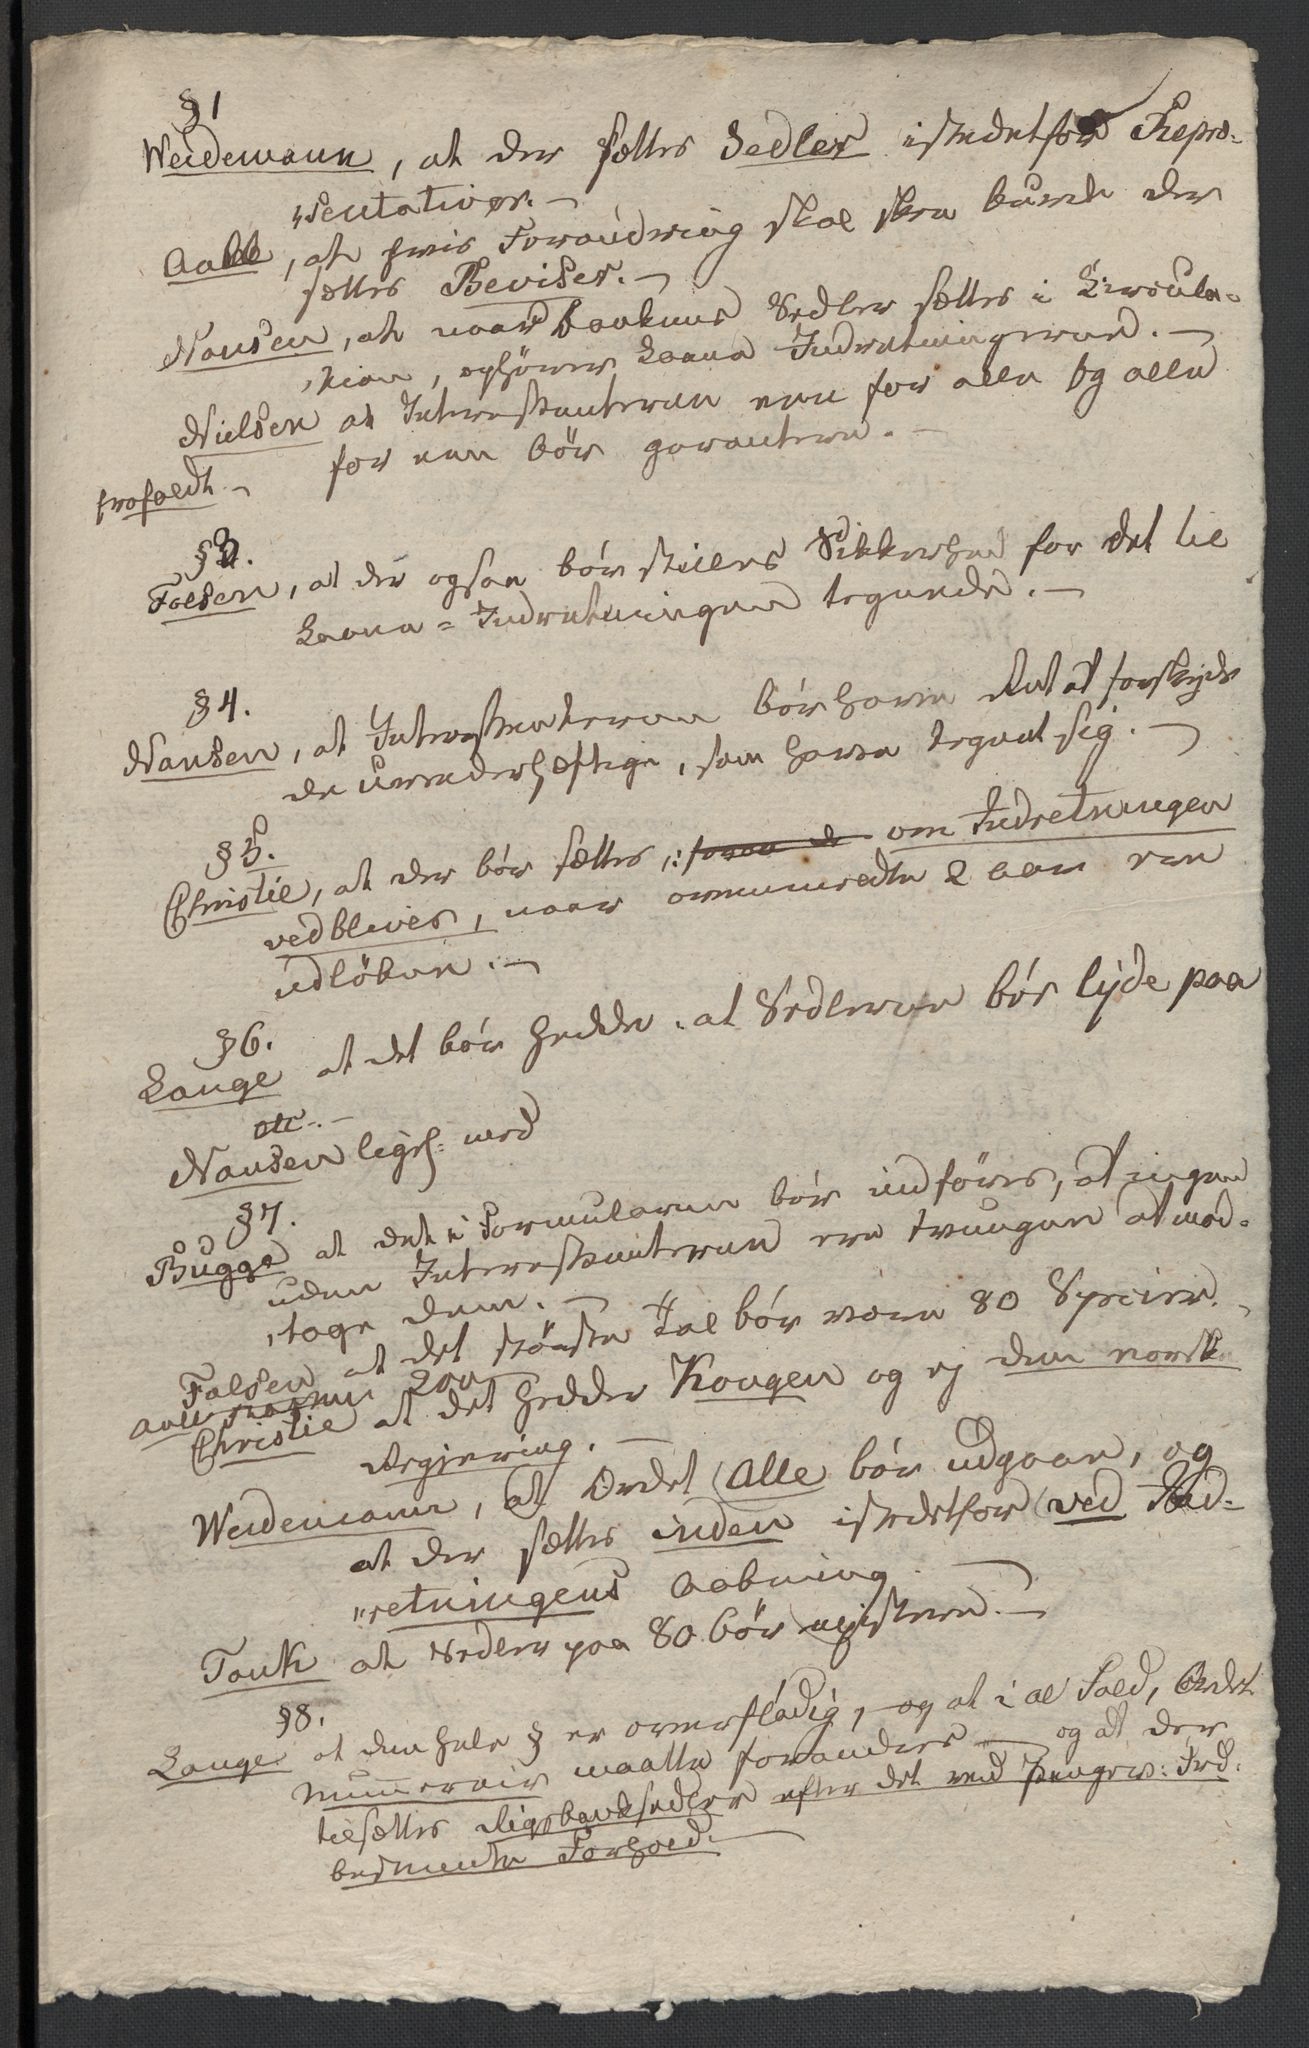 §1
Weidemann, at der sættes Sedler istedetfor Repræ-
„sentativer. –
Aall, at hvis Forandring skal skee burde der
sættes Beviser. –
Nansen, at naar Bankens Sedler sættes i Circula-
„tion, ophörer Laane Indretningerne. –
Nielsen at Interessenterne een for alle og alle
for een bör garantere. –
frafaldt. –
§3.
Falsen, at der ogsaa bör stilles Sikkerhed for det til
Laane-Indretningen tegnede. –
§4.
Nansen, at Interessenterne bör have Ret at forskyde
de Uvederhæftige, som have tegnet sig. –
§5.
Christie, at der bör sættes, om Indretningen
vedblives, naar ovennævnte 2 Aar ere
udlöbne. –
§6.
Lange at det bör hedde: at Sedlerne bör lyde paa
etc. –
Nansen ligel: med
§7.
Bugge at det i Formularen bör indföres, at ingen
uden Interessenterne ere tvungen at mod-
„tage dem. –
Falsen at det största Tal bör være 80 Species. –
Christie at det hedder Kongen og ej den norske
Regjering. –
Weidemann, at Ordet (Alle bör udgaae, og
at der sættes inden istedetfor (ved Ind-
„retningens Aabning.
Tank at Sedler paa 80 bör existere. –
§8.
Lange at den hele § er overflödig, og at i al Fald, Ordet
Numerair maatte forandres – og at der
tilsættes Rigsbanksedler efter det ved Penges: Frd:
bestemte Forhold. –